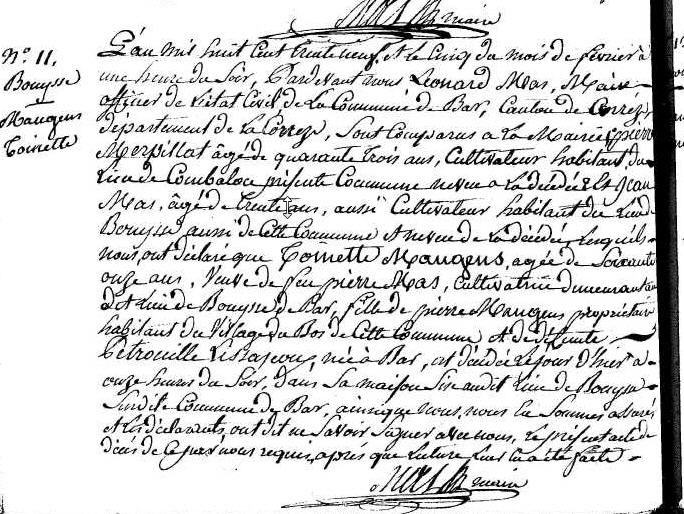 Mas maire
N.º 11.
Bouysse
Maugens
Toinette
L'an mil huit cent trente neuf, et le cinq du mois de février à
une heure du soir, Pardevant nous Léonard Mas, Maire
officier de l'état civil de la Commune de Bar, Canton de Corrèze,
département de la Corrèze, sont comparus a la Mairie pierre
Merpillat âgé de quarante trois ans, Cultivateur habitant du
Lieu de Combalou présente Commune neveu a la décédée Et Jean
Mas, âgé de trente ans, aussi Cultivateur habitant du Lieu de
Bouysse aussi de cette Commune et neveu de la décédée, lesquels
nous, ont déclaré que Toinette Maugens, agée de soixante
onze ans, Veuve de feu pierre Mas, cultivatrice demeurant au
dit Lieu de Bouysse de Bar, fille de pierre Maugens propriétaire
habitant du Village du Bos de Cette Commune et de défunte
Petrouille, née à Bar, est décédée le jour d'hier a
onze heures du Soir, dans sa maison Sise audit Lieu de Bouysse
Susdite Commune de Bar, ainsi que nous, nous En Sommes assurés
et les déclarants, ont dit ne Savoir Signer avec nous, le présent acte de
décès de ce par nous requis, après que lecture leur en a été faite
Mas maire